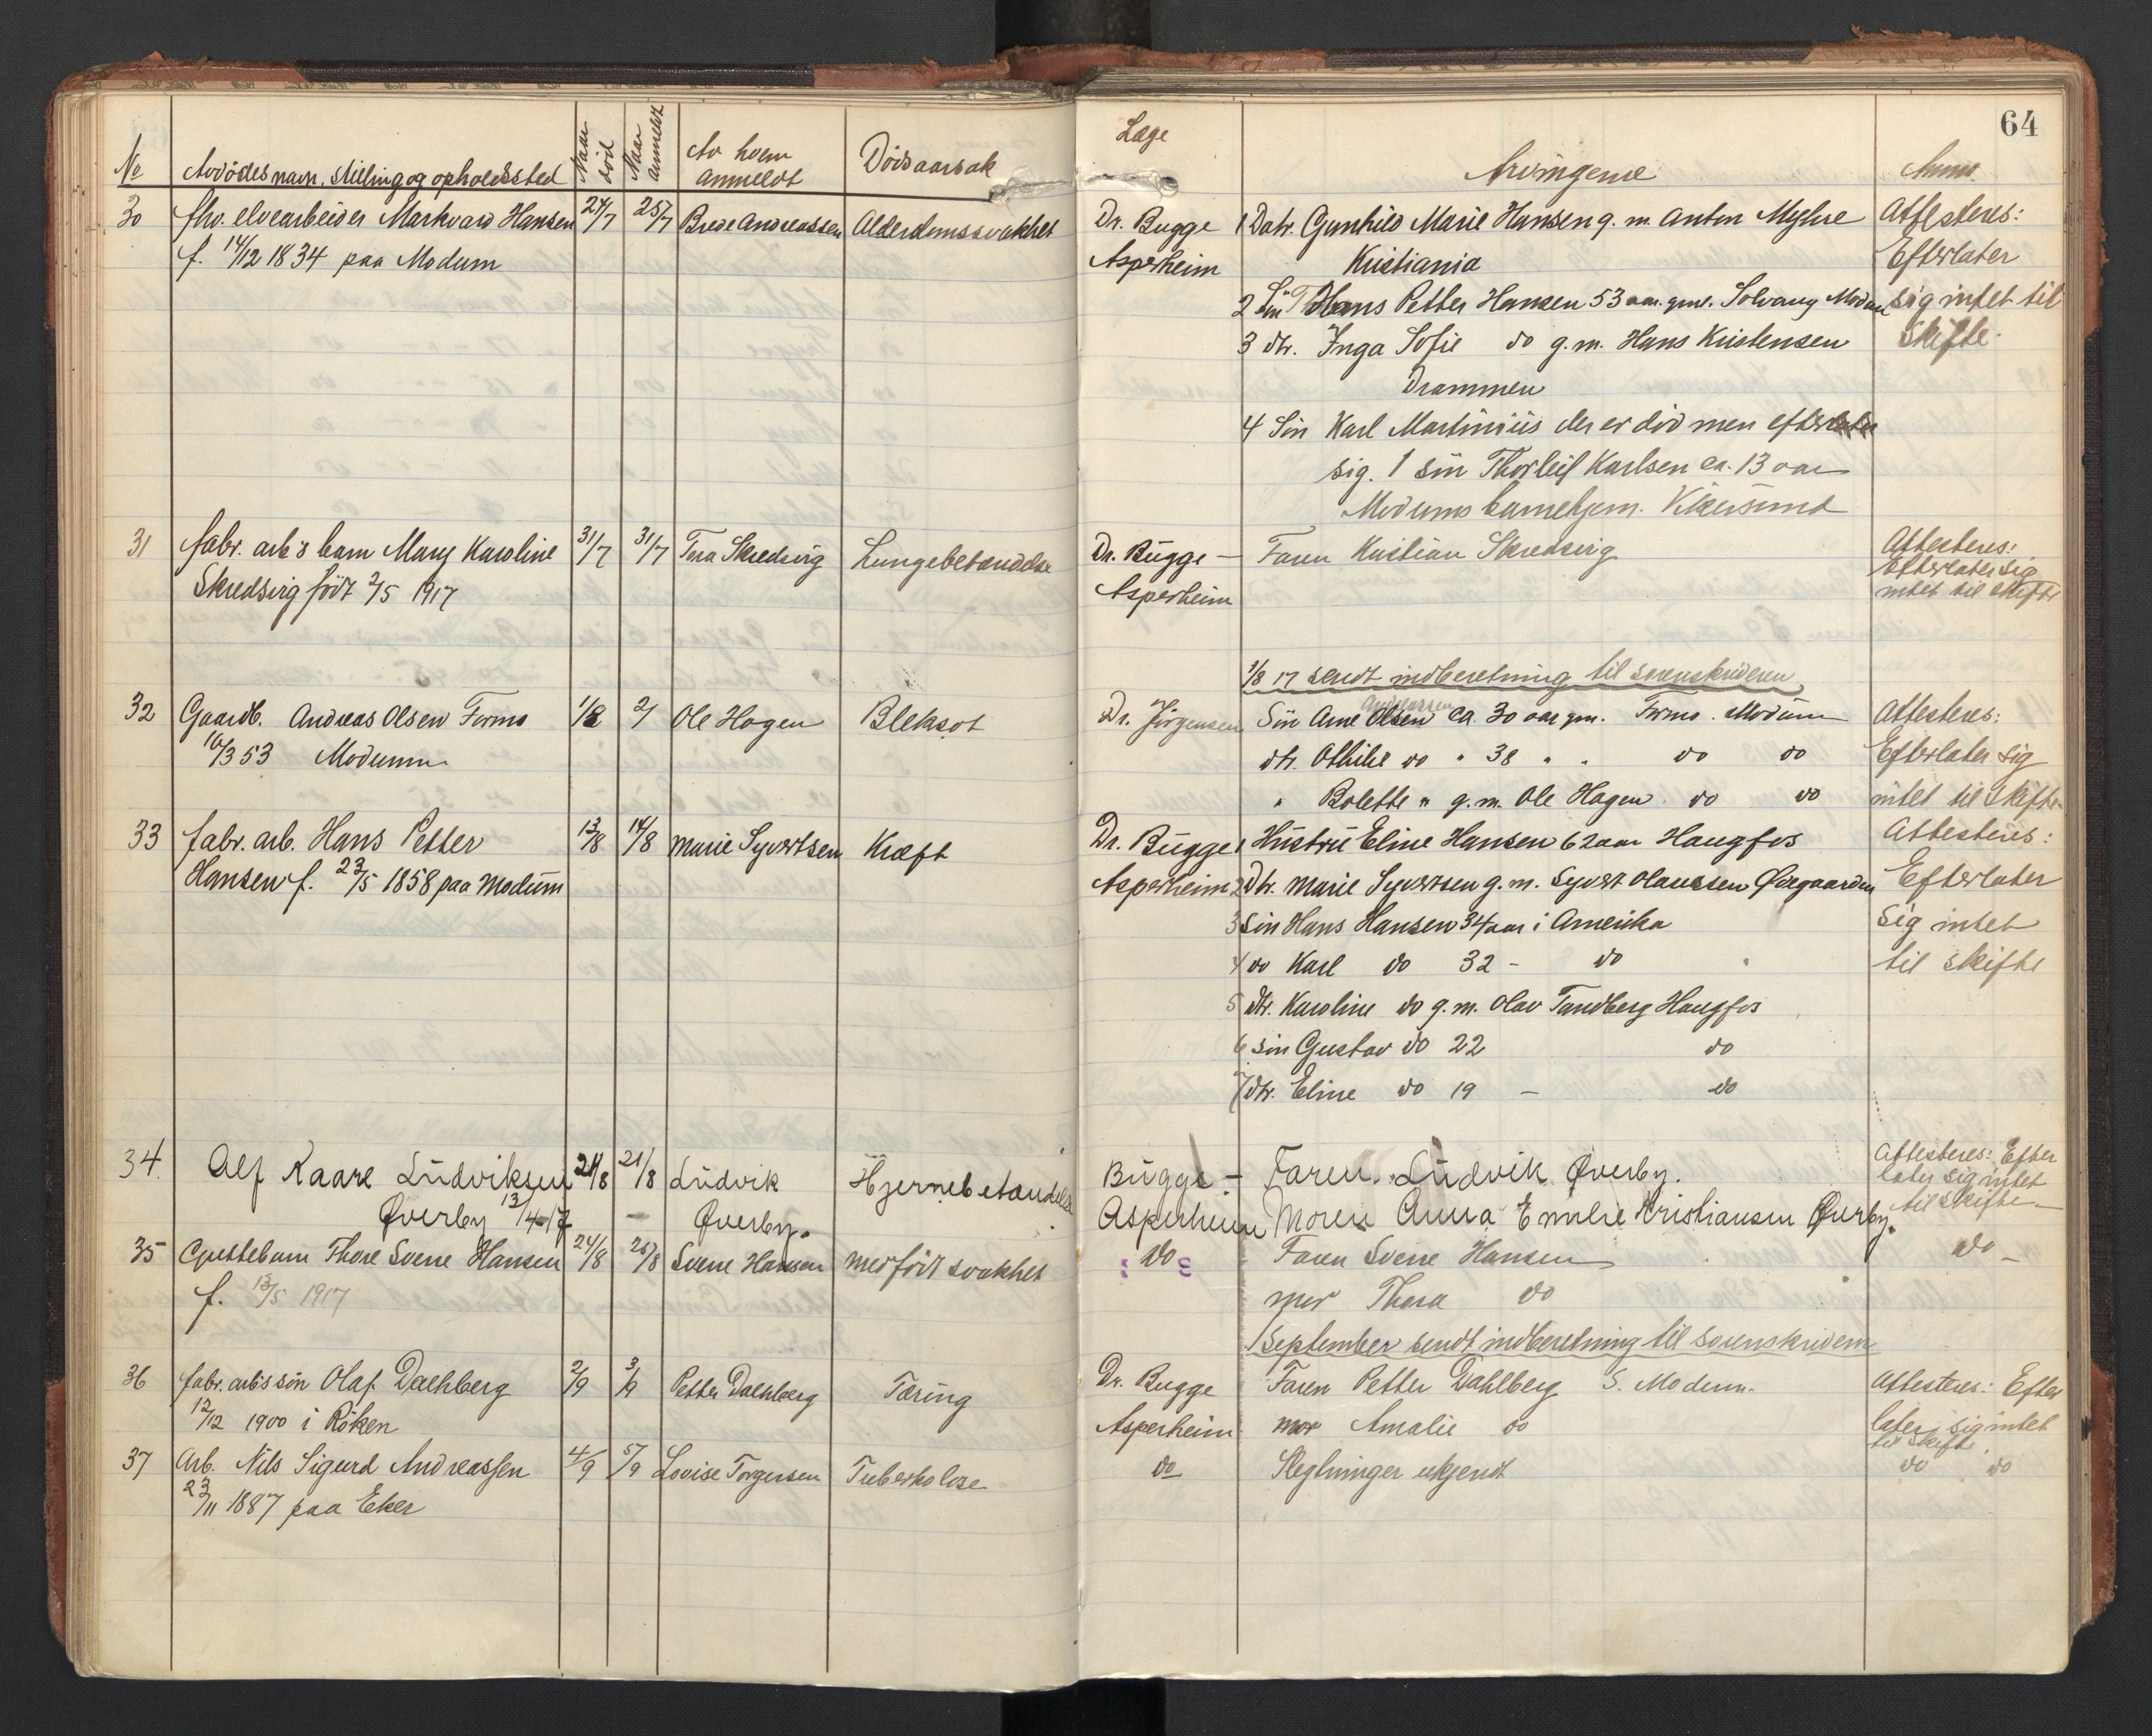 64
No Avdödes navn, stilling og opholdssted Naar död Naar anmeldt Av hvem anmeldt Dödsaarsak Læge Arvingerne Anm.
30 fhv. elvearbeider Markvard Hansen 24/7 25/7 Brede Andreassen Alderdomssvakhet Dr. Bugge 1 Datr. Gunhild Marie Hansen g. m. Anton Myhre Attesteres:
f. 14/12 1834 paa Modum Asperheim Kristiania Efterlater
2 Sön Hans Petter Hansen 53 aar. gml. Solvang Modum sig intet til
3 dtr. Inga Sofie do g. m. Hans Kristensen Skifte.
Drammen
4 Sön Karl Martinius der er död men efterlater
sig. 1 sön Thorleif Karlsen ca. 13 aar
Modums barnehjem. Vikersund
31 fabr. arb's barn Mary Karoline 31/7 31/7 Tea Skredsvig Lungebetændelse Dr. Bugge – Faren Kristian Skredsvig Attesteres:
Skredsvig födt 2/5 1917 Asperheim Efterlater sig
intet til skifte
1/8 17 sendt indberetning til sorenskriveren
Andreassen
32 Gaardb. Andreas Olsen Formo 1/8 2/ Ole Hagen Bleksot Dr. Jörgensen Sön Arne Olsen ca. 30 aar gm. Formo. Modum Attesteres:
10/3 53 Modum dtr. Othilie do " 38 " " do do Efterlater sig
" Bolette " g. m. Ole Hagen do do intet til Skifte
33 fabr. arb. Hans Petter 13/8 14/8 Marie Syvertsen Kræft Dr. Bugge 1 Hustru Eline Hansen 62 aar Haugfos Attesteres:
Hansen f. 23/5 1858 paa Modum Asperheim 2 Dtr. Marie Syvertsen g. m. Syvert Olaussen Övegaarden Efterlater
3 Sön Hans Hansen 34 aar i Amerika Sig intet
4 do Karl do 32 – do til skifte
5 Dtr. Karoline do g. m. Olav Tandberg Haugfos
6 sön Gustav do 22 do
7 dtr. Eline do 19 – do
34. Alf Kaare Ludviksen 21/8 21/8 Ludvik Hjernebetændelse Bugge – Faren Ludvik Øverby. Attesteres: Efter
Øverby 13/4-17 – Øverby. Asperheim Moren Anna Emilie Kristiansen Øverby. later sig intet
til skifte –
35 Gjestebarn Thore Sverre Hansen 24/8 25/8 Sverre Hansen medfödt svakhet do Faren Sverre Hansen do –
f. 13/5 1917 mor Thora do
1 September sendt indberetning til sorenskriveren
36 fabr. arb's sön Olaf Dahlberg 2/9 3/9 Petter Dahlberg Tæring Dr. Bugge Faren Petter Dahlberg S. Modum. Attesteres: Efter
12/12 1900 i Röken Asperheim mor Amalie do later sig intet
til skifte.
37 Arb. Nils Sigurd Andreassen 4/9 5/9 Lovise Torgersen Tuberkolose do Slegtninger ukjendt do do
23/11 1887 paa Eker